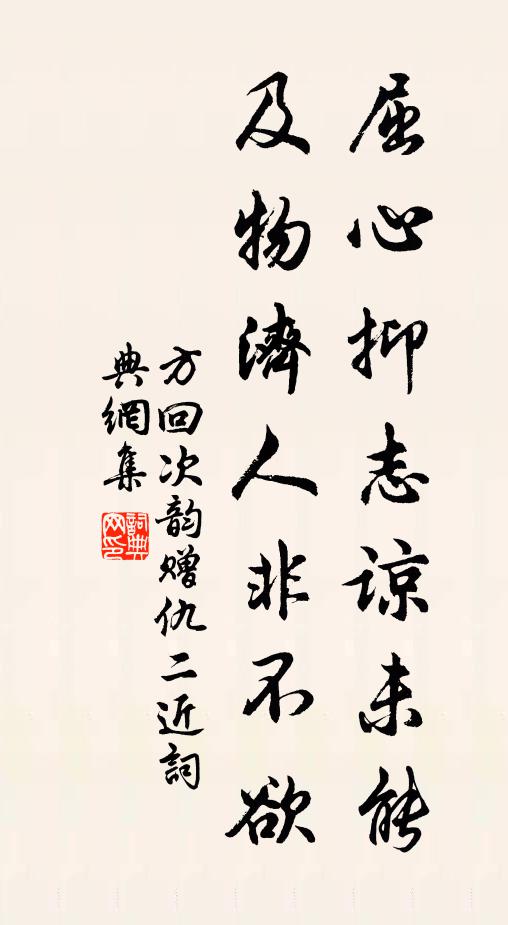 屈心抑志谅未能
及物濟人非不欲
方回次韵赠仇二近詞
典網集
詞典
网印